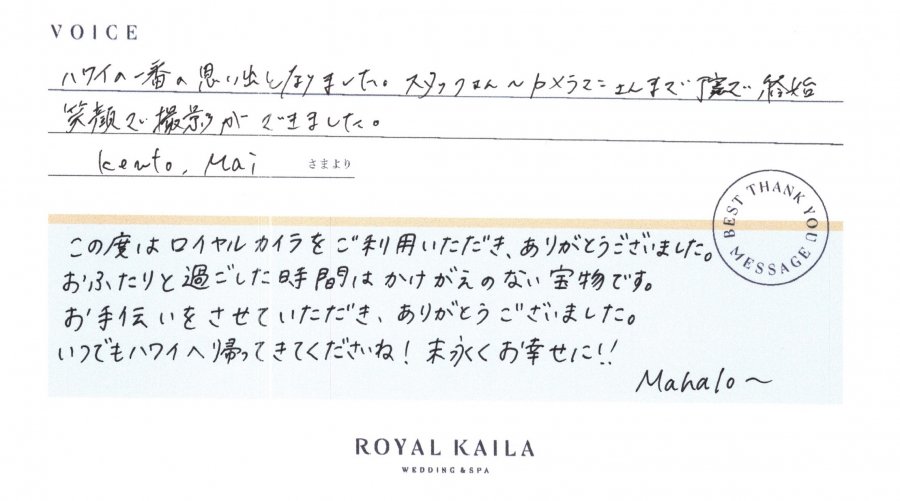 VOICE
ハワイの一番の思い出となりました。スタッフさん〜カメラマンさんまで 終始
笑顔で撮影ができました。
Kento, Mai さまより
BEST THANK YOU MESSAGE
この度はロイヤルカイラをご利用いただき、ありがとうございました。
おふたりと過ごした時間はかけがえのない宝物です。
お手伝いをさせていただき、ありがとうございました。
いつでもハワイへ帰ってきてくださいね！末永くお幸せに!!
Mahalo〜
ROYAL KAILA
WEDDING & SPA